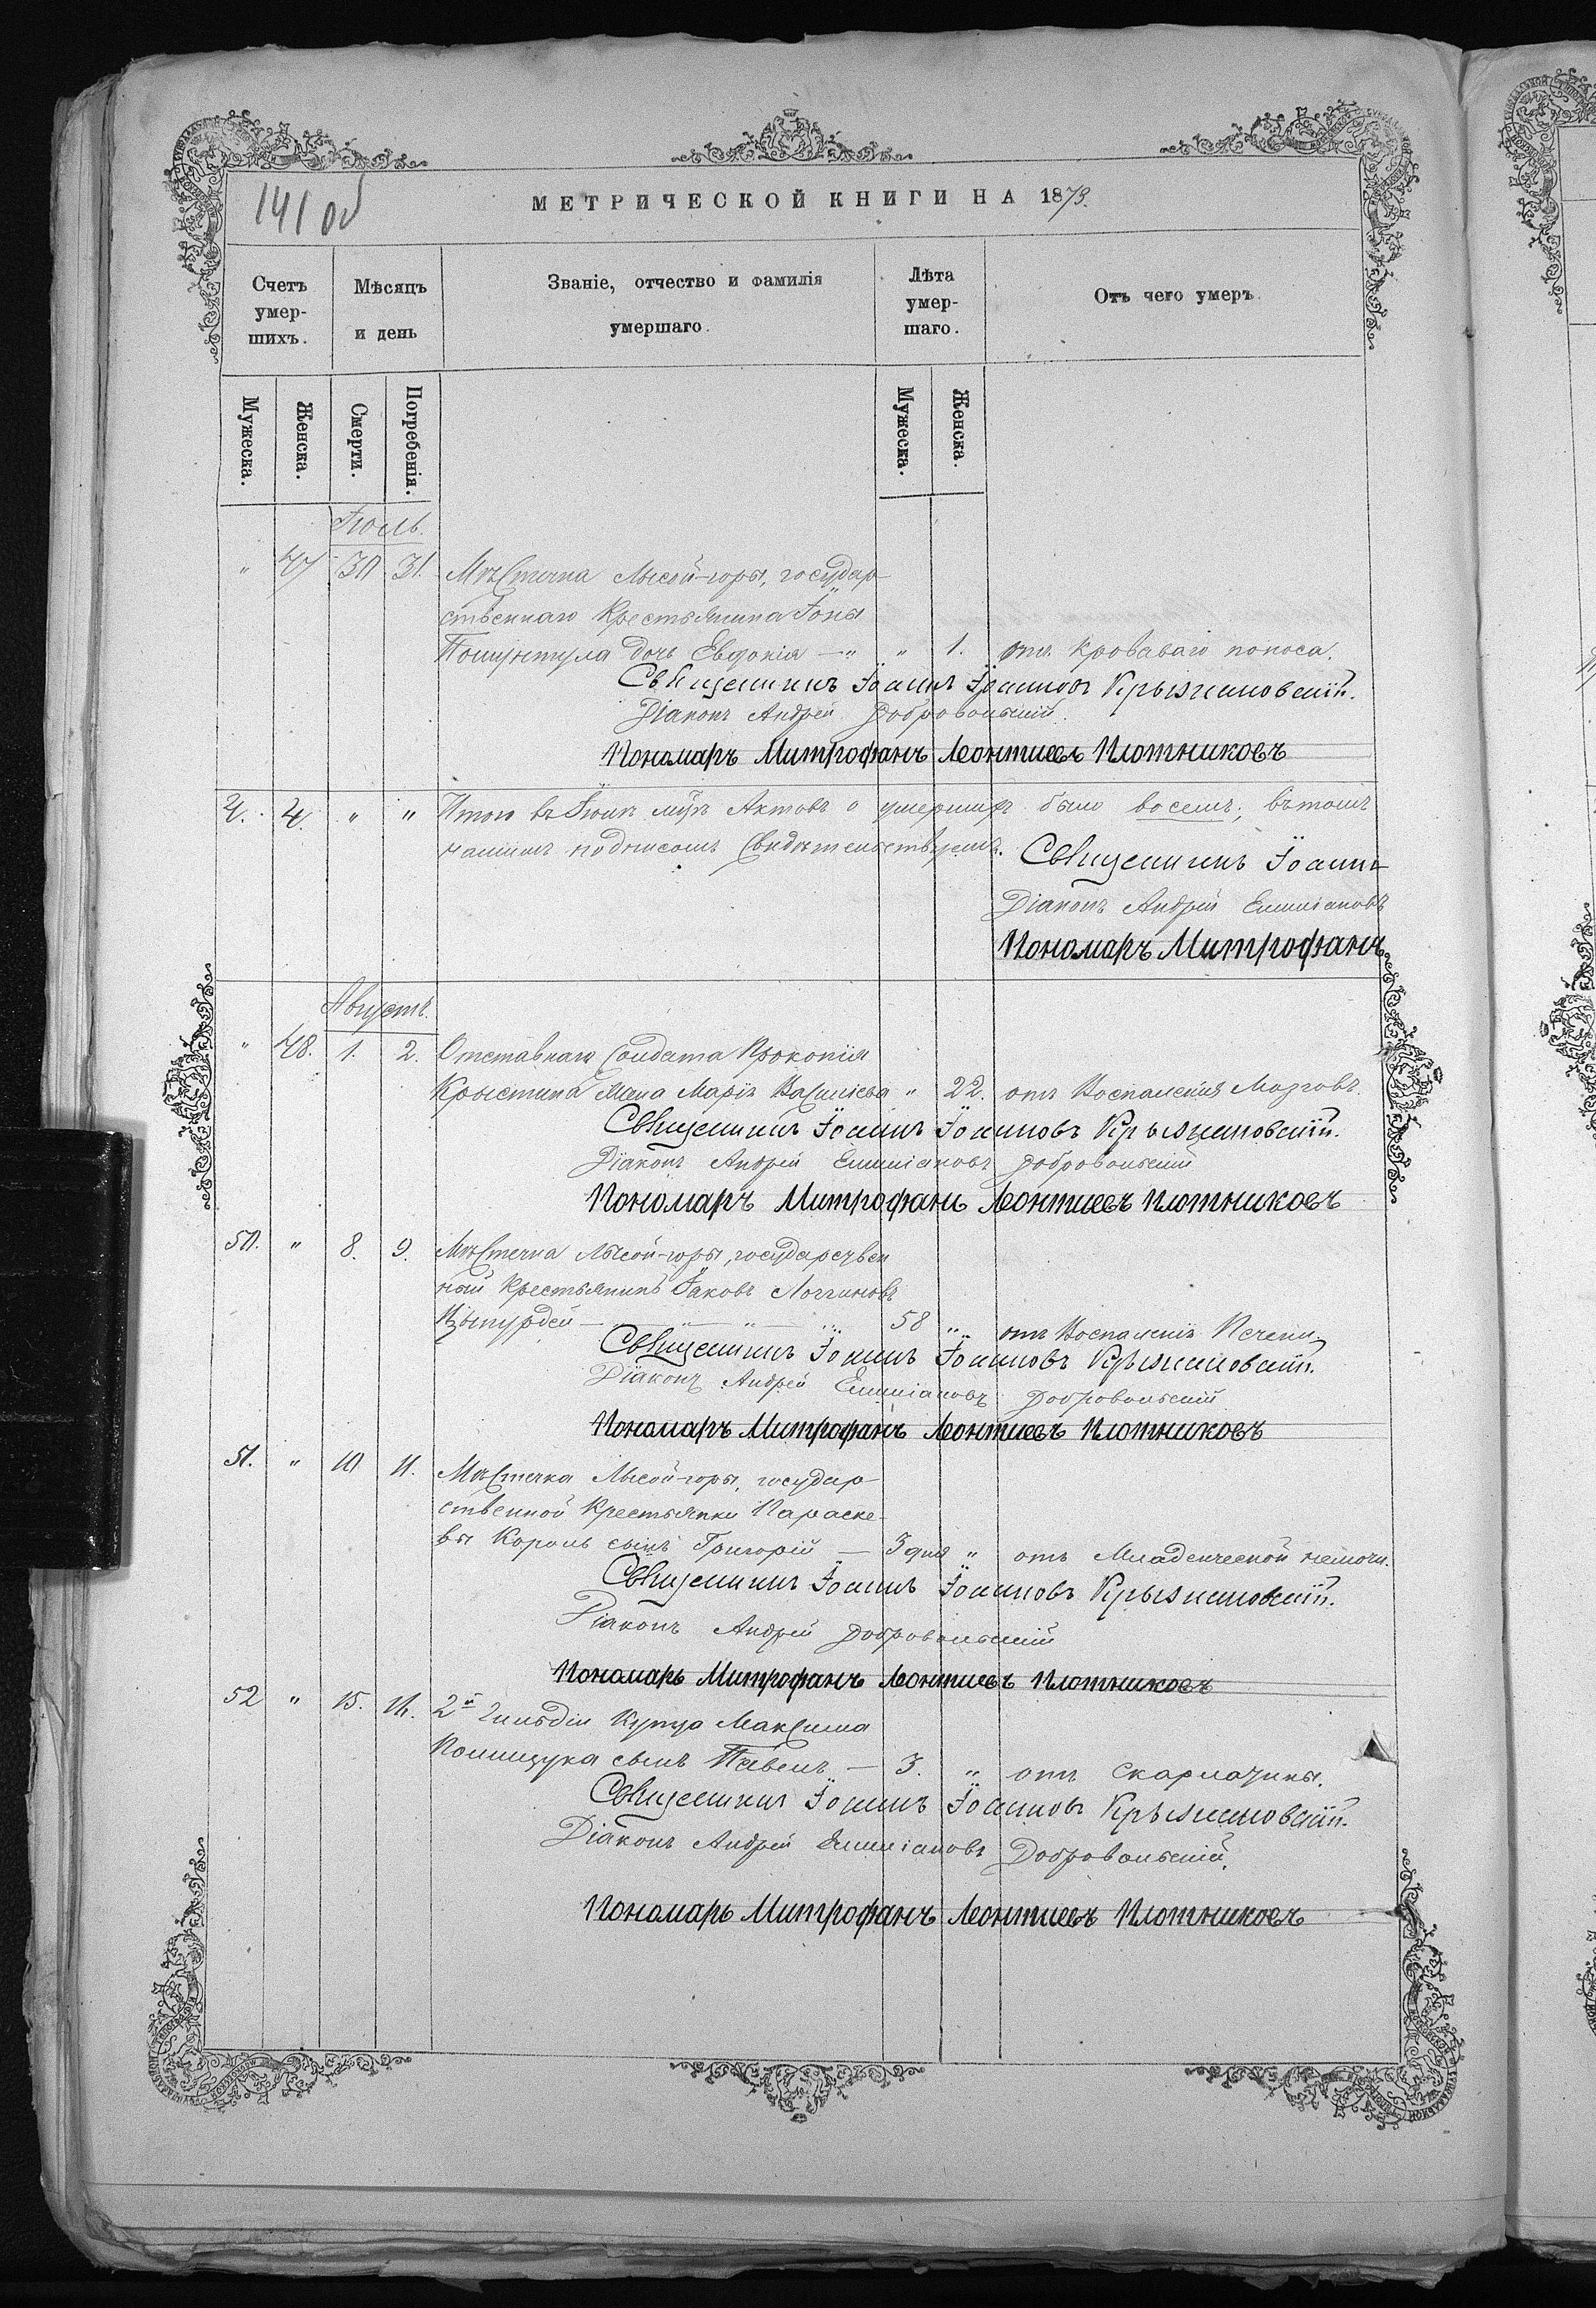 141 об
МЕТРИЧЕСКОЙ КНИГИ НА 1873.
Счетъ умер-шихъ.
Мѣсяцъ и день
Званіе, отчество и фамилія умершаго.
Лѣта умер-шаго.
Отъ чего умеръ.
Мужеска.
Женска.
Смерти.
Погребенія.
Мужеска.
Женска.
Іюль.
" 47 30 31. Мѣстечка Лысой-горы, государ-
ственнаго Крестьянина Іоны
дочь Евдокія — " " 1. отъ кроваваго поноса.
Священникъ Іоаннъ Іоанновъ Крыжановскій.
Діаконъ Андрей Добровольскій.
Пономарь Митрофанъ Леонтиевъ Плотниковъ
4. 4. " " Итого въ Іюлѣ Актовъ о умершихъ было восемь, въ томъ
нашимъ подписомъ Свидѣтельствуемъ.
Священникъ Іоаннъ
Діаконъ Андрей Емиліановъ
Пономарь Митрофанъ
Августъ.
" 48. 1. 2. Отставнаго Солдата Прокопія
Крыстина жена Марія Василіева " 22. отъ Воспаленія Мозговъ.
Священникъ Іоаннъ Іоанновъ Крыжановскій.
Діаконъ Андрей Емиліановъ Добровольскій
Пономарь Митрофанъ Леонтиевъ Плотниковъ
50. " 8. 9. Мѣстечка Лысой-горы, государствен
ный Крестьянинъ Іаковъ Логгиновъ
58 " отъ Воспаленія Печени.
Священникъ Іоаннъ Іоанновъ Крыжановскій.
Діаконъ Андрей Емиліановъ Добровольскій
Пономарь Митрофанъ Леонтиевъ Плотниковъ
51. " 10 11. Мѣстечка Лысой-горы, государ-
ственной Крестьянки Параске-
вы Король сынъ Григорій — 3 дня " отъ Младенческой немочи.
Священникъ Іоаннъ Іоанновъ Крыжановскій.
Діаконъ Андрей Добровольскій
Пономарь Митрофанъ Леонтиевъ Плотниковъ
52 " 15. 16. 2й Гильдіи Купца Максима
Полищука сынъ Павелъ — 3. " отъ Скарлатины.
Священникъ Іоаннъ Іоанновъ Крыжановскій.
Діаконъ Андрей Емиліановъ Добровольскій.
Пономарь Митрофанъ Леонтиевъ Плотниковъ